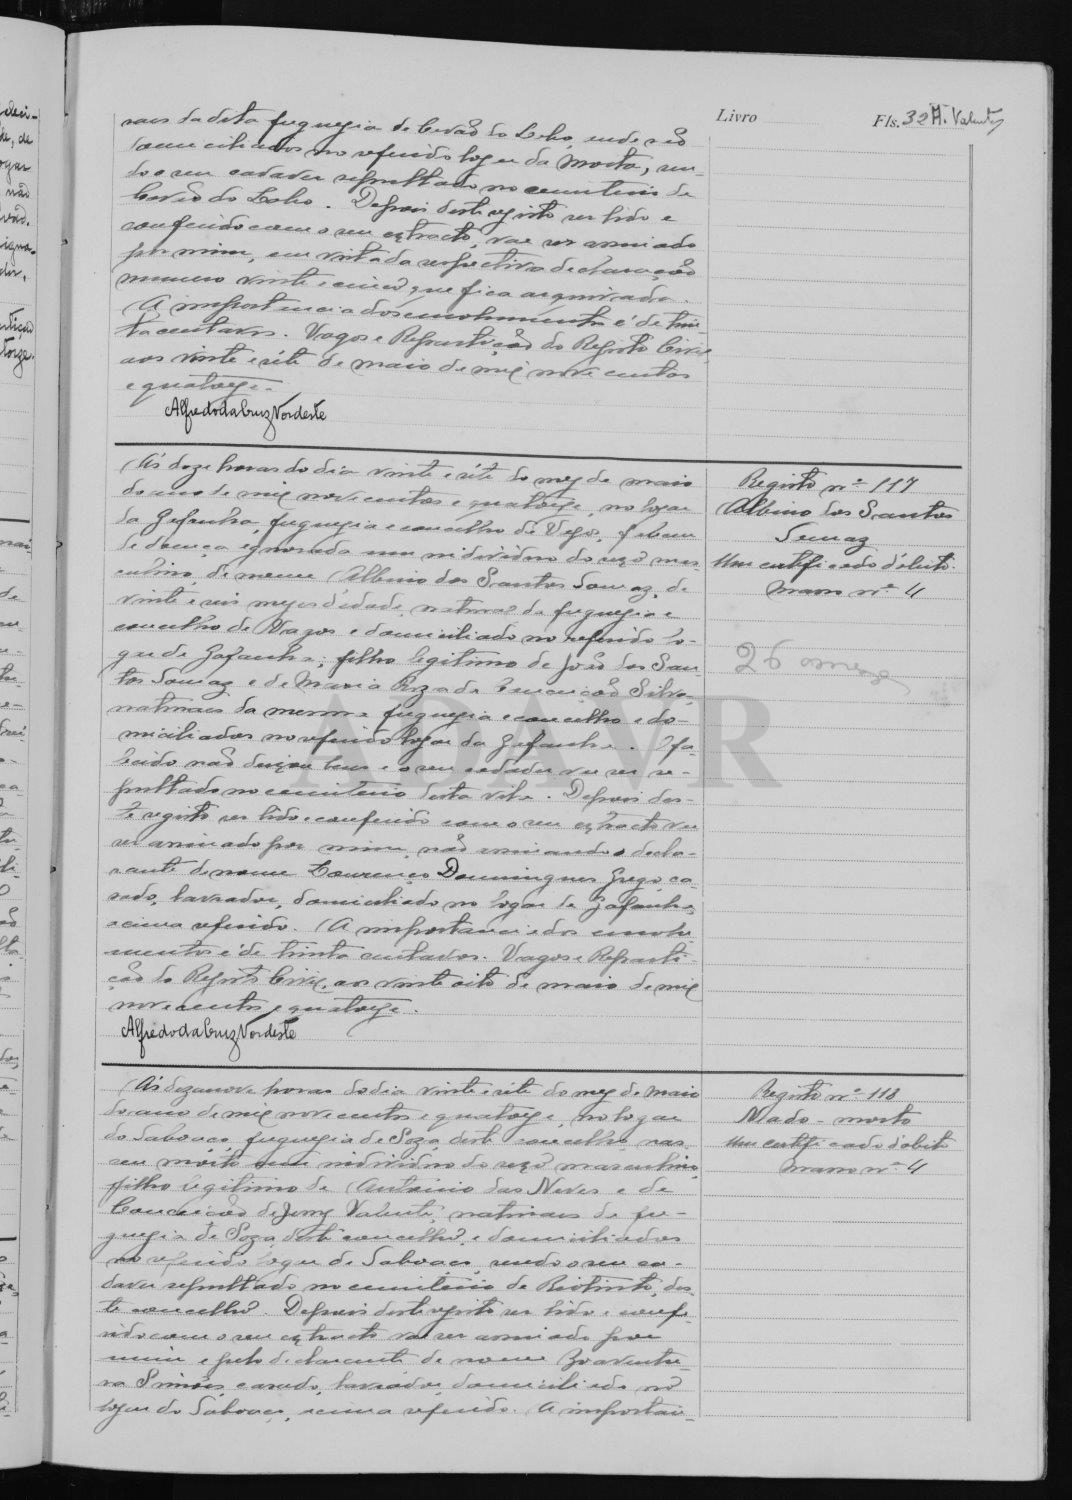 Livro Fls. 32 A. Valente
raes da dita freguezia de Covão do Lobo, onde são
domiciliados no referido logar da Moita, sen-
do o seu cadaver sepultado no cemiterio de
Covão do Lobo. Depois deste registo ser lido e
conferido com o seu extracto, vae ser assinado
por mim, em vista da respectiva declaração
numero vinte e cinco que fica arquivada.
A importancia dos emolumentos é de trin-
ta centavos. Vagos e Repartição do Registo Civil,
aos vinte e séte de maio de mil nove centos
e quatorze.
Alfredo da Cruz Nordeste
Registo nº 117
Albino dos Santos
Um certificado d'óbito.
Masso nº 4
26 mezes
Ás doze horas do dia vinte e séte do mez de maio
do ano de mil nove centos e quatorze, no logar
da Gafanha, freguezia e concelho de Vagos, faleceu
de doença ignorada um individuo do sexo mas-
culino, de nome Albino dos Santos, de
vinte e seis mezes d'edade, natural da freguezia e
concelho de Vagos e domiciliado no referido lo-
gar da Gafanha, filho legitimo de João dos San-
tos e de Maria Roza da Conceição Silva,
naturaes da mesma freguezia e concelho e do-
miciliados no referido logar da Gafanha. O fa-
lecido não deixou bens e o seu cadaver vae ser se-
pultado no cemiterio desta vila. Depois des-
te registo ser lido e conferido com o seu extracto vae
ser assinado por mim, não assinando o decla-
rante de nome Lourenço Domingues Grego, ca-
sado, lavrador, domiciliado no logar da Gafanha,
acima referido. A importancia dos emolu-
mentos é de trinta centavos. Vagos e Reparti-
ção do Registo Civil, aos vinte oito de maio de mil
nove centos e quatorze.
Alfredo da Cruz Nordeste
Registo nº 118
Nado-morto
Um certificado d'óbito
Masso nº 4
Ás dezanove horas do dia vinte e séte do mez de maio
do ano de mil nove centos e quatorze, no logar
do Salvaço, freguezia de Soza, deste concelho, nas-
ceu morto um individuo do sexo masculino,
filho legitimo de Antonio das Neves e de
Conceição de Jesus Valente, naturaes da fre-
guezia de Soza, deste concelho, e domiciliados
no referido logar de, sendo o seu ca-
daver sepultado no cemiterio de Riotinto, des-
te concelho. Depois deste registo ser lido e confe-
rido com o seu extracto vae ser assinado por
mim e pelo declarante de nome Boaventu-
ra Simões, casado, lavrador, domiciliado no
logar do, acima referido. A importan-
ADAVR